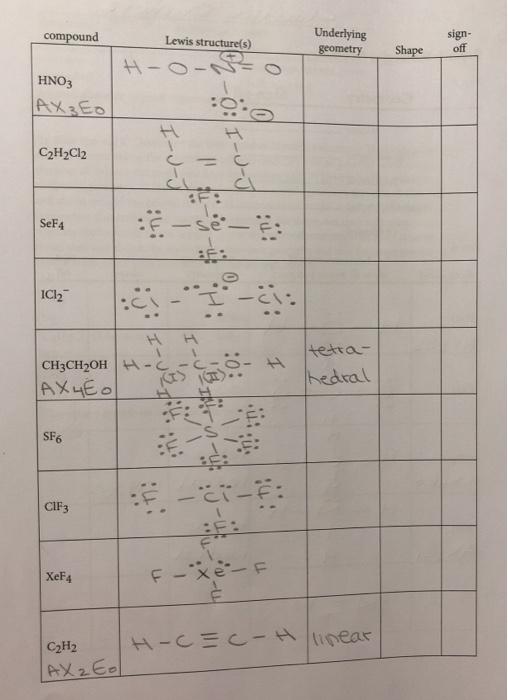 compound Lewis structure(s) Underlying geometry Shape sign-off
HNO3 H-O-N=O
⊕
:O: ⊖
AX3E0
C2H2Cl2
H H
C = C
Cl Cl
SeF4
:F:
:F - Se - F:
:F:
ICl2-
⊖
:Cl - I - Cl:
CH3CH2OH
H H
H-C-C-O-H
(I) (II)
H H
AX4E0
tetra-
hedral
SF6
:F: :F: :F:
S
:F: :F: :F:
ClF3
:F - Cl - F:
:F:
XeF4
F
F - Xe - F
F
C2H2 H-C≡C-H linear
AX2E0